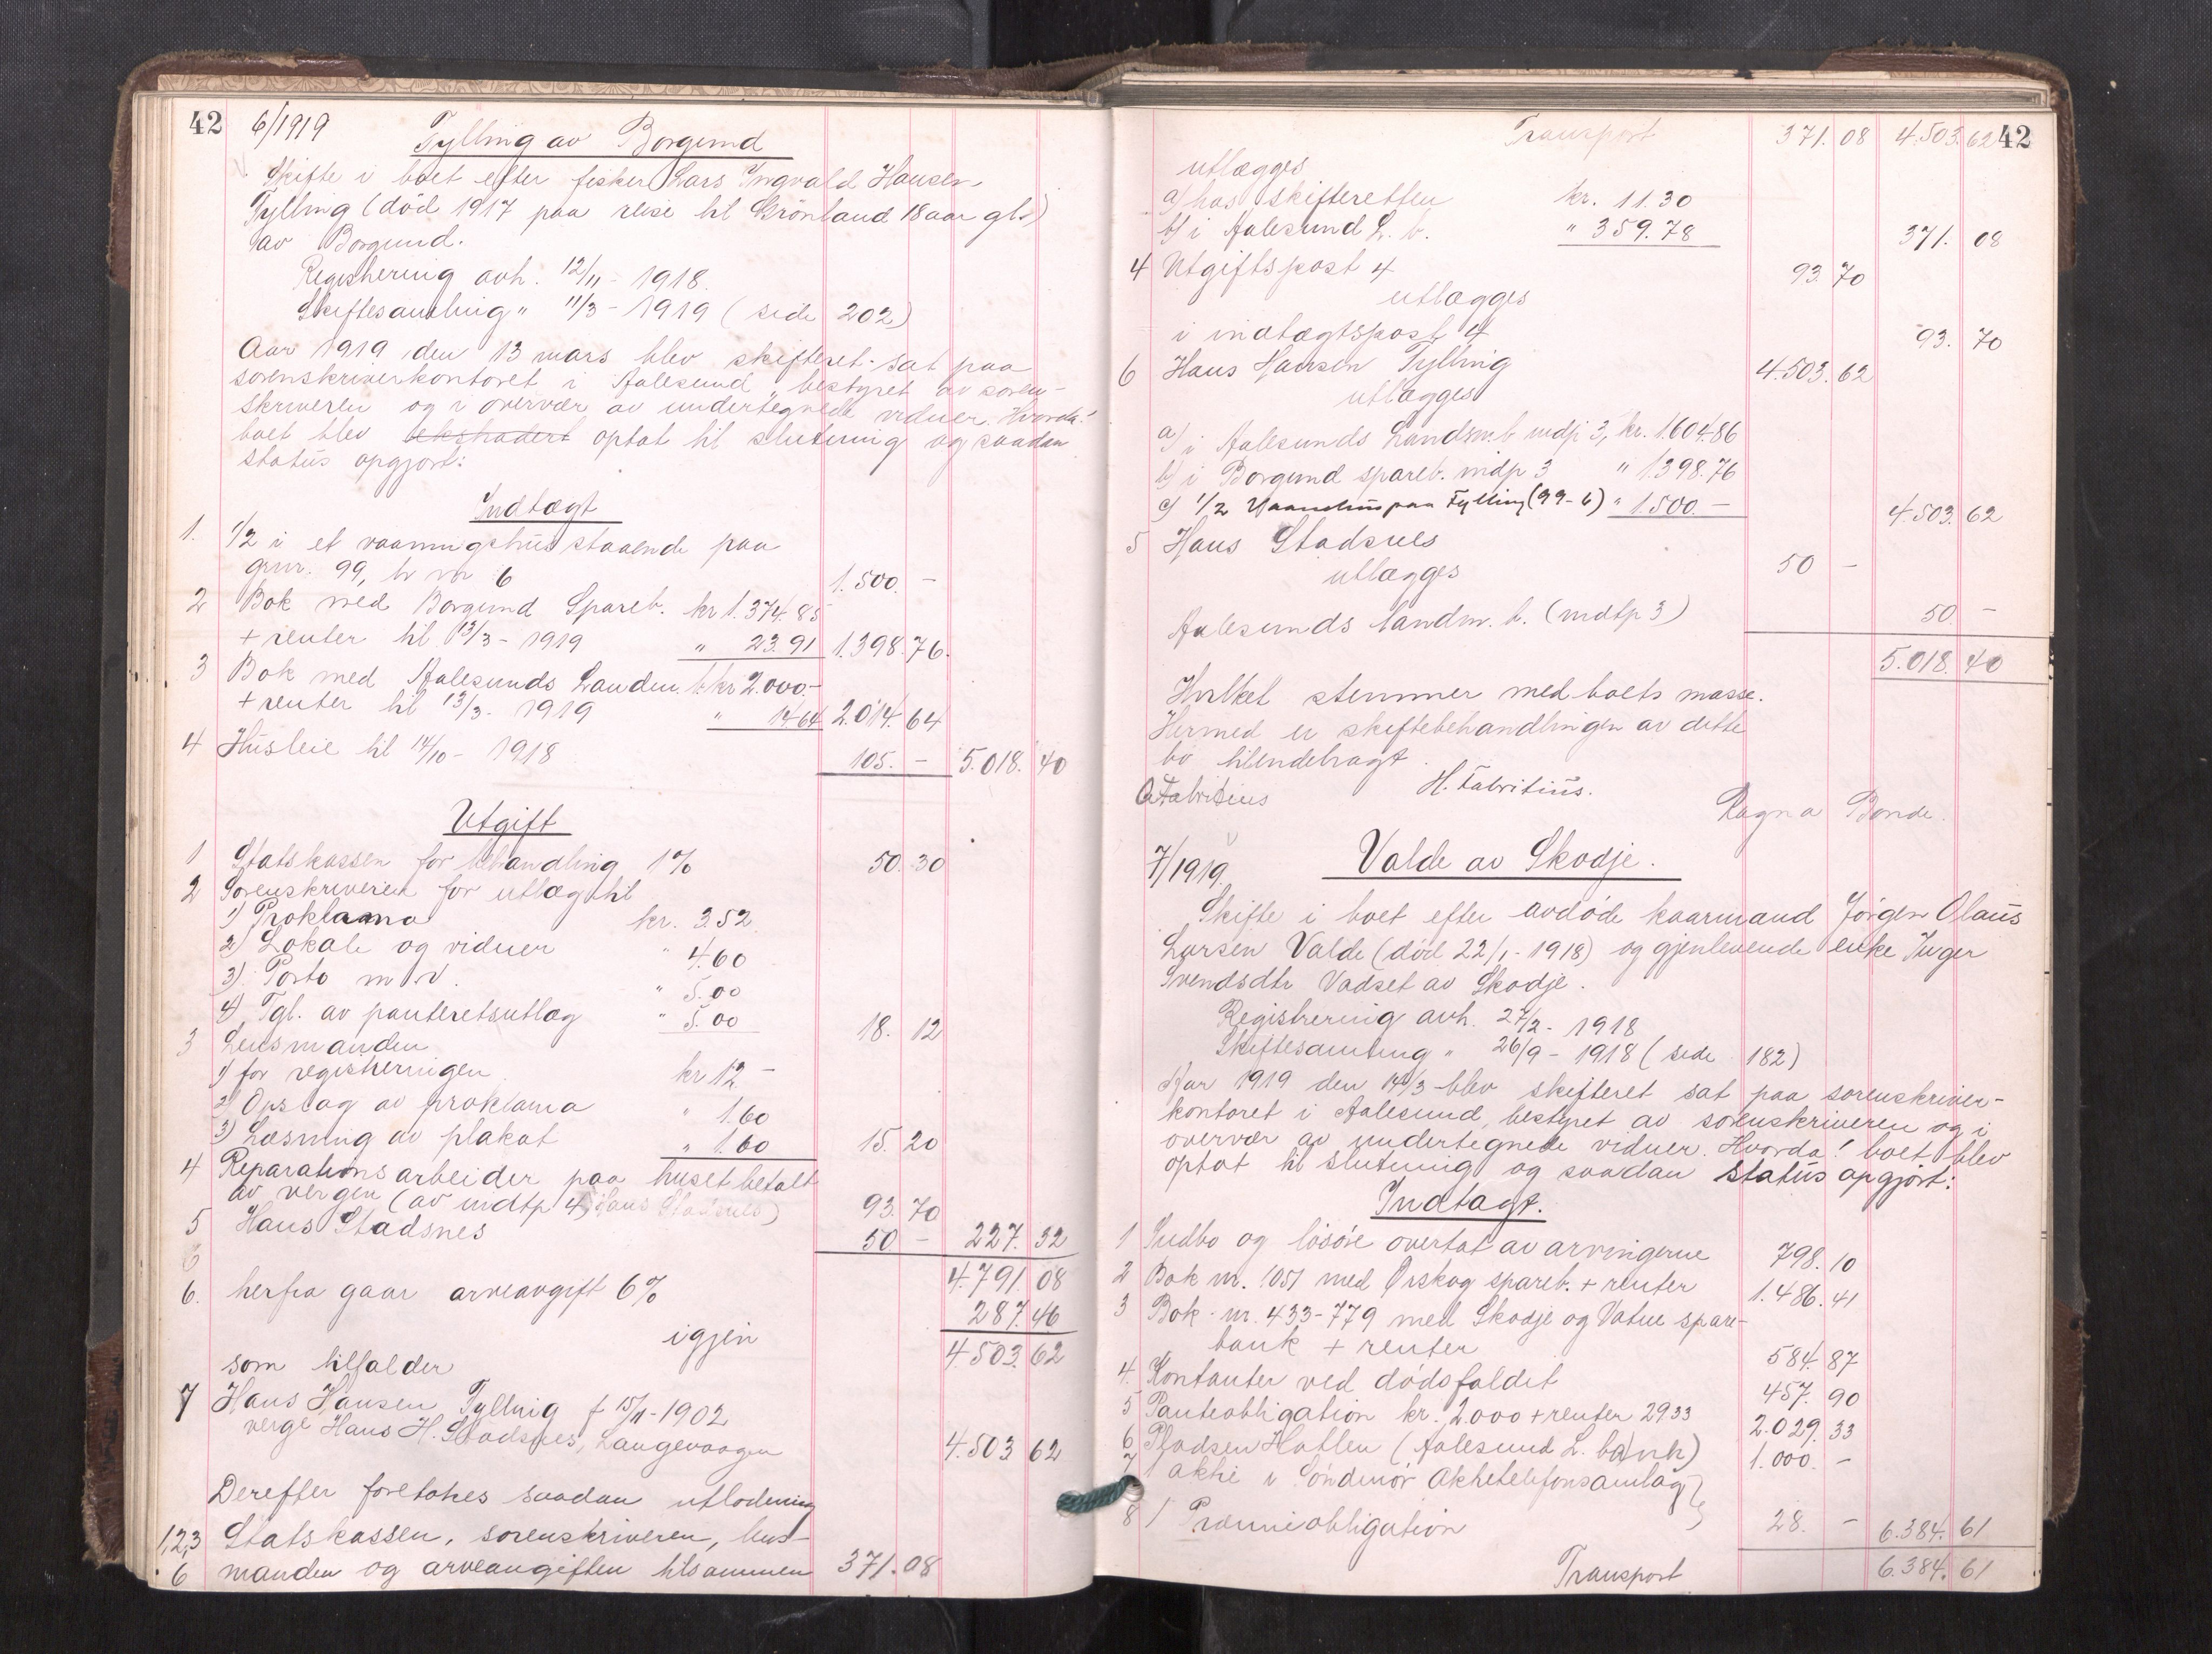 42 6/1919 Fylling av Borgund
Skifte i boet efter fisker Lars Ingvald Hansen
Fylling (død 1917 paa reise til Grönland 18 aar gl.)
av Borgund.
Registrering avh. 12/11 - 1918.
Skiftesamling " 11/3 - 1919 (side 202)
Aar 1919 den 13 mars blev skifteret sat paa
sorenskriverkontoret i Aalesund, bestyret av soren-
skriveren og i overvær av undertegnede vidner. Hvorda!
boet blev ekstradert optat til slutning og saadan
status opgjort:
Indtægt
1. 1/2 i et vaaningshus staaende paa
gnr. 99, br nr 6 1.500. -
2 Bok med Borgund Spareb. kr 1.374.85
+ renter til 13/3 - 1919 " 23.91 1.398.76.
3 Bok med Aalesunds Landm. b. kr 2.000.-
+ renter til 13/3 - 1919 " 14.64 2.014.64
4 Husleie til 14/10 - 1918 105. - 5.018.40
Utgift
1 Statskassen for behandling 1% 50.30
2 Sorenskriveren for utlæg til
1) Proklama kr. 3.52
2) Lokale og vidner " 4.60
3) Porto m.v. " 5.00
4) Tgl. av panteretsutlæg " 5.00 18.12
3 Lensmanden
1) for registreringen kr 12 -
2) Opslag av proklama " 1.60
3) Læsning av plakat " 1.60 15.20
4 Reparationsarbeider paa huset betalt
av vergen (av indtp 4) Hans Stadsnes) 93.70
5 Hans Stadsnes 50 - 227.32
4.791.08
6. herfra gaar arveavgift 6% 287.46
igjen 4.503.62
som tilfalder
7 Hans Hansen Fylling f 15/11-1902
verge Hans H. Stadsnes, Langevaagen 4.503 62
Derefter foretokes saadan utlodning
1,2,3 Statskassen, sorenskriveren, lens-
6 manden og arveavgiften tilsammen 371.08
Transport 371.08 4.503.62 42
utlægges
a) hos skifteretten kr. 11.30
b) i Aalesund L. b. " 359.78 371.08
4 Utgiftspost 4 93.70
utlægges
i indtægtspost 4 93.70
6 Hans Hansen Fylling 4.503.62
utlægges
a) i Aalesunds Landm.b indp 3, kr. 1.604.86
b) i Borgund spareb. indp 3 " 1.398.76
c) 1/2 Vaaningshus paa Fylling (99-6) " 1.500.- 4.503.62
5 Hans Stadsnes 50 -
utlægges
Aalesunds landm. b. (indtp 3) 50 -
5.018.40
Hvilket stemmer med boets masse.
Hermed er skiftebehandlingen av dette
bo tilendebragt.
H. Fabritius.
Fabritius Ragna Bonde.
7/1919. Valde av Skodje.
Skifte i boet efter avdøde kaarmand Jørgen Olaus
Larsen Valde (død 22/1-1918) og gjenlevende enke Inger
Svendsdtr Vadset av Skodje.
Registrering avh. 27/2 - 1918
Skiftesamling " 26/9 - 1918 (side 182)
Aar 1919 den 14/3 blev skifteret sat paa sorenskriver-
kontoret i Aalesund, bestyret av sorenskriveren og i
overvær av undertegnede vidner. Hvorda! boet blev
optat til slutning og saadan status opgjort:
Indtægt.
1 Indbo og løsøre overtat av arvingerne 798.10
2 Bok nr. 1051 med Ørskog spareb. + renter 1.486.41
3 Bok nr. 433-779 med Skodje og Vatne spare-
bank + renter 584.87
4. Kontanter ved dødsfaldet 457.90
5 Panteobligation kr. 2.000 + renter 29 33 2.029.33
6 Hatlen (Aalesund L. bank) 1.000. -
7 1 aktie i Söndmör Aktietelefonsamlag
8 1 Præmieobligation 28. - 6.384.61
Transport 6.384.61